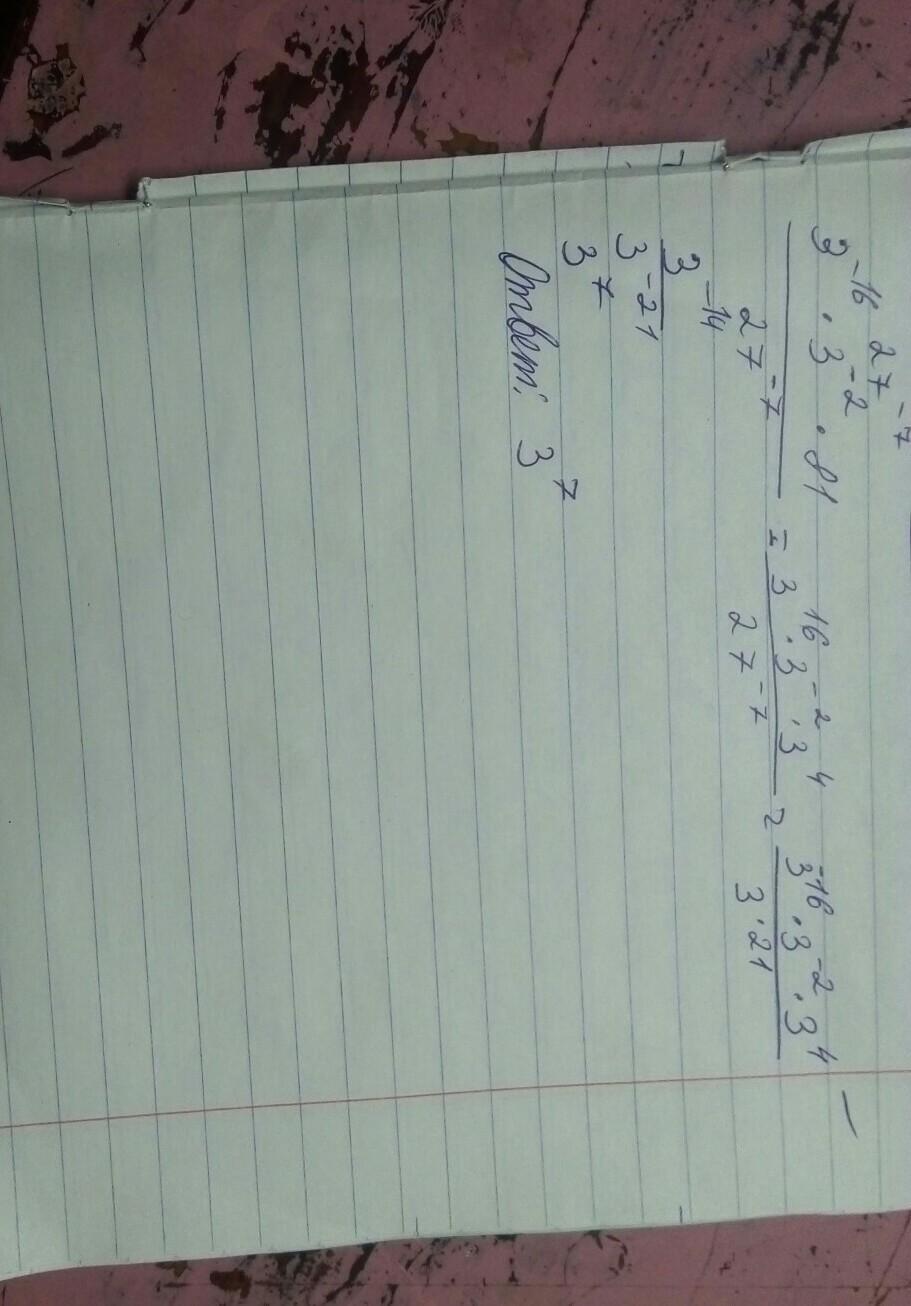 27⁻⁷
3⁻¹⁶ · 3⁻² · 81 / 27⁻⁷ = 3¹⁶ · 3⁻² · 3⁴ / 27⁻⁷ = 3⁻¹⁶ · 3⁻² · 3⁴ / 3·21 –
3⁻¹⁴ / 3⁻²¹
3⁷
Ответ: 3⁷